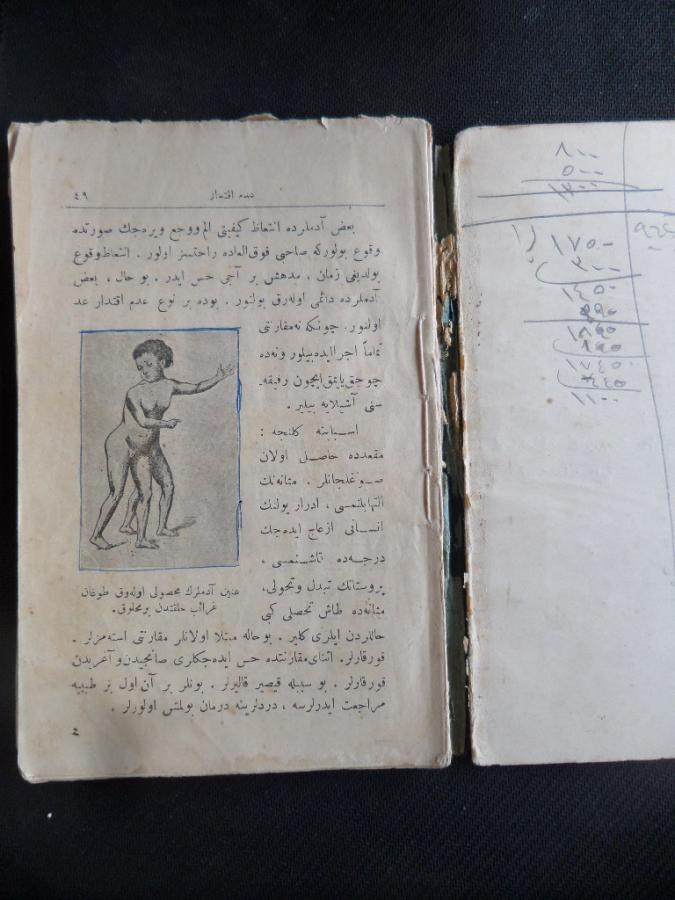 عدم اقتدار ٤٩
بعض آدملرده انتعاظ كیفیتی الم ووجع ویره‌جك صورتده
وقوع بولوركه صاحبی فوق‌العاده راحتسز اولور. انتعاظ وقوع
بولدیغی زمان، مدهش بر آجی حس ایدر. بو حال، بعض
آدملرده دائمی اوله‌رق بولنور. بوده بر نوع عدم اقتدار عد
اولنور. چونكه نه مقارنتی
تماماً اجرا ایده‌بیلور ونه‌ده
چوجق یاپمق ایچون رفیقه‌
سنی آشیلایه بیلیر.
اسبابنه كلنجه:
مقعدده حاصل اولان
صوغلجانلر. مثانه‌نك
التهابلنمسی، ادرار یولنك
انسانی ازعاج ایده‌جك
درجه‌ده تاشنمسی،
پروستاتك تبدل وتحولی،
مثانه‌ده طاش تحصلی كبی
عنین آدملرك محصولی اوله‌رق طوغان
غرائب خلقتدن بر مخلوق.
حاللردن ایلری كلیر. بو حاله مبتلا اولانلر مقارنتی استه‌مزلر.
قورقارلر. اثنای مقارنتده حس ایده‌جكلری صانجیدن و آغریدن
قورقارلر. بو سببله قیصیر قالیرلر. بونلر بر آن اول بر طبیبه
مراجعت ایدرلرسه، دردلرینه درمان بولمش اولورلر.
٤
٨٠٠
٥٠٠
١٣٠٠
١٧٥٠
٣٠٠
١٤٥٠
١٧٤٥
٦٤٥
١١٠٠